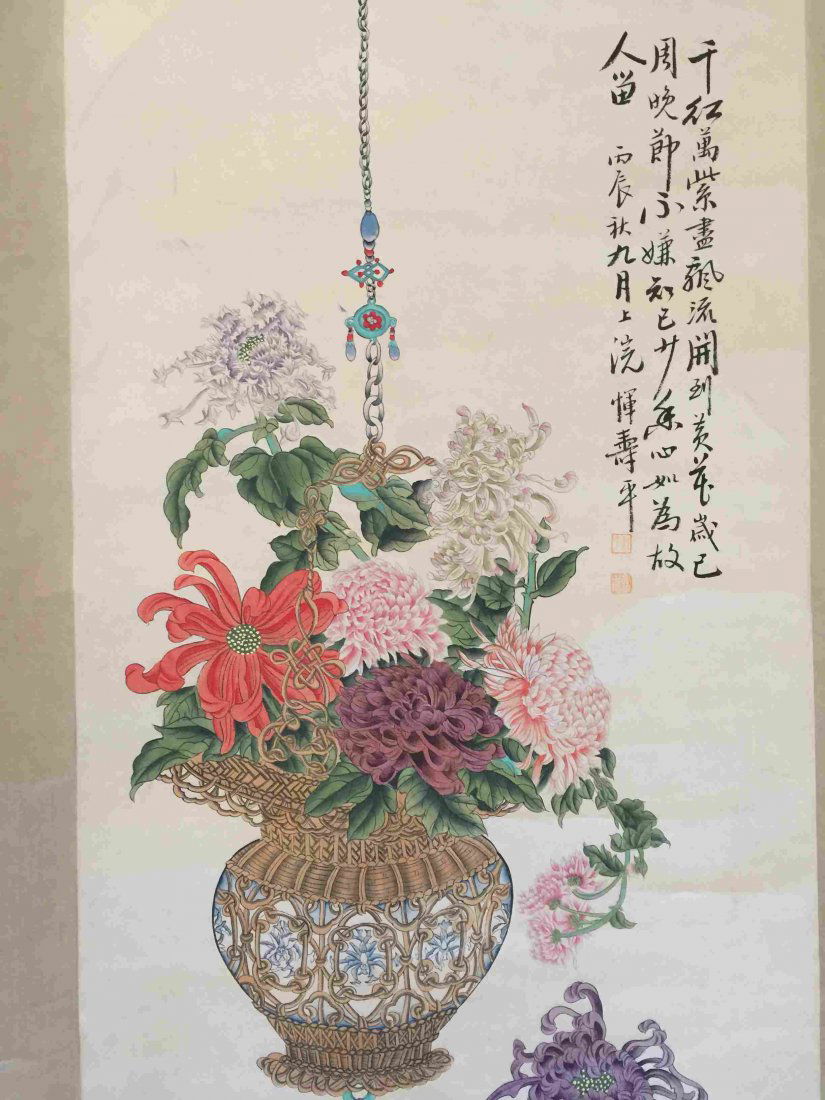 千紅萬紫盡飄流開到黃花歲已
周晚節不嫌知己少香心如為故
人留
丙辰秋九月上浣 惲壽平